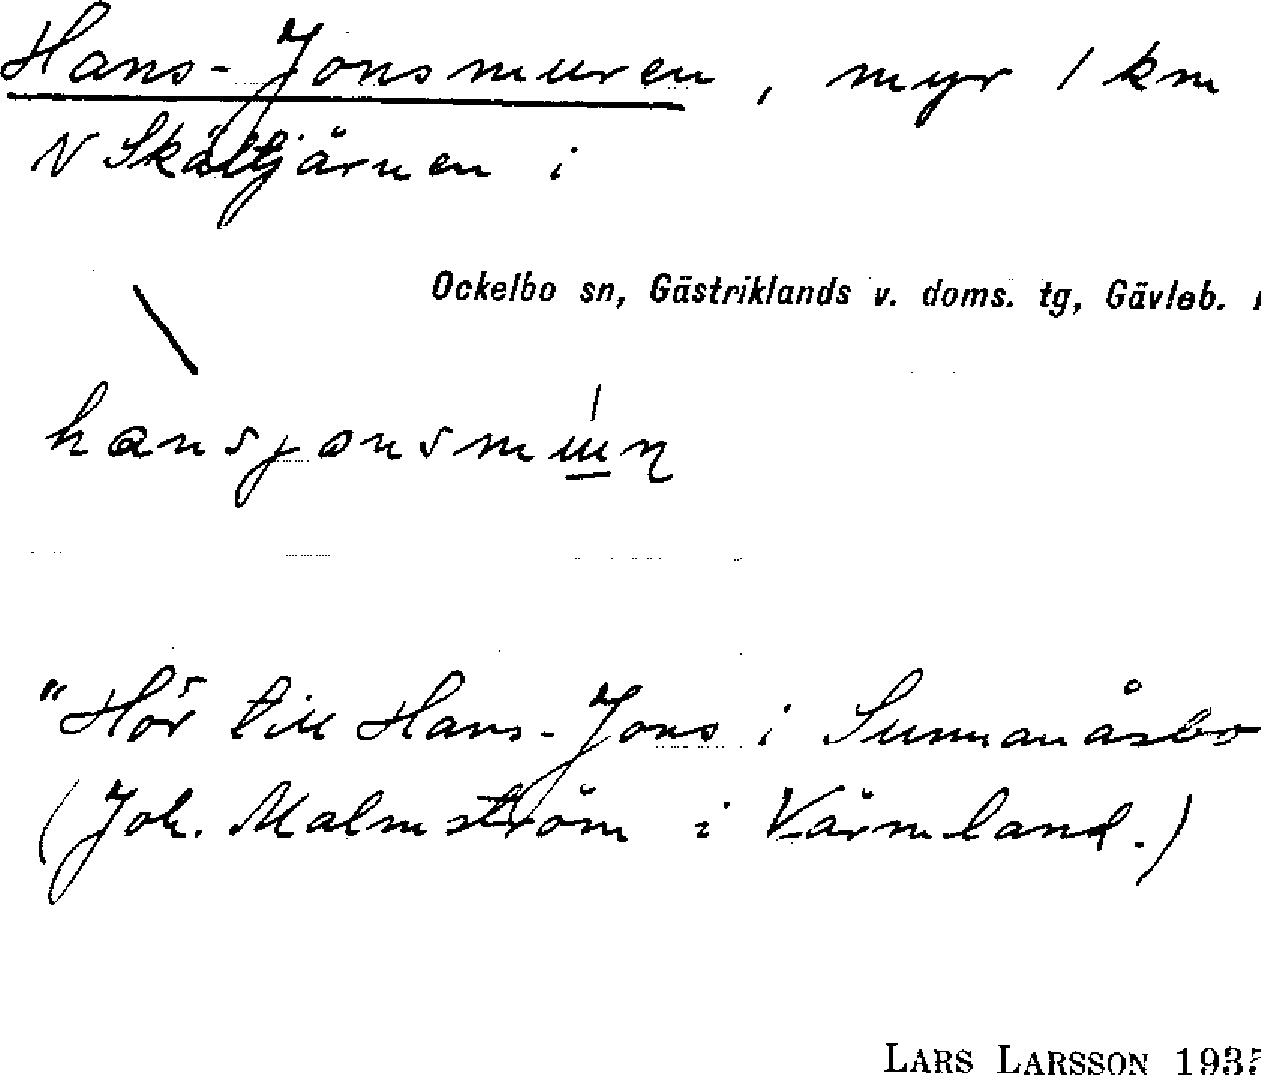 Hans-Jonsmuren, myr 1 km
N Skältjärnen i
Ockelbo sn, Gästriklands v. doms. tg, Gävleb.
"Hör till Hans-Jons i Sunnanåsbo
(Joh. Malmström i Värmland.)
LARS LARSSON 193